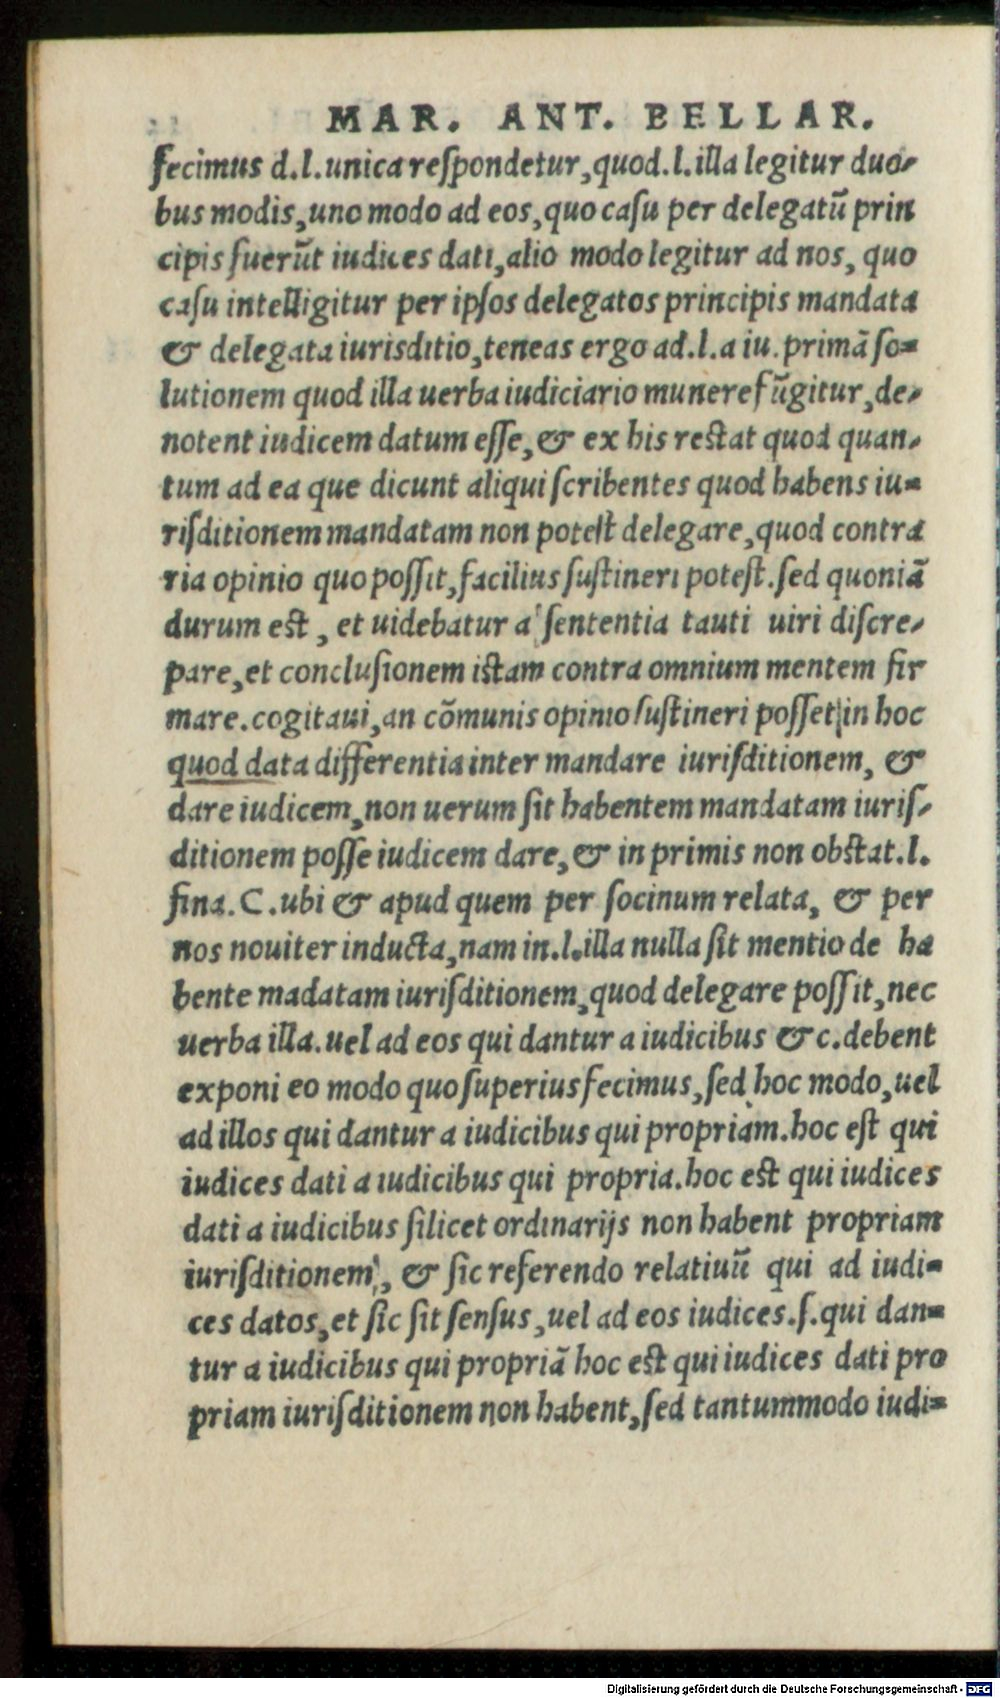 MAR. ANT. BELLAR.
fecimus d.l.unica reſpondetur,quod.l.illa legitur duo-
bus modis,uno modo ad eos,quo caſu per delegatū prin
cipis fuerūt iudices dati,alio modo legitur ad nos, quo
caſu intelligitur per ipſos delegatos principis mandata
& delegata iurisditio,teneas ergo ad.l.a iu.primā ſo-
lutionem quod illa uerba iudiciario munere fūgitur,de-
notent iudicem datum eſſe,& ex his restat quod quan-
tum ad ea que dicunt aliqui ſcribentes quod habens iu-
riſditionem mandatam non poteſt delegare,quod contra
ria opinio quo poſſit,facilius ſuſtineri poteſt.ſed quoniā
durum est , et uidebatur a ſententia tauti uiri diſcre-
pare,et concluſionem istam contra omnium mentem fir
mare.cogitaui,an cōmunis opinio ſuſtineri poſſet in hoc
quod data differentia inter mandare iuriſditionem, &
dare iudicem,non uerum ſit habentem mandatam iuriſ-
ditionem poſſe iudicem dare,& in primis non obstat.l.
fina.C.ubi & apud quem per ſocinum relata, & per
nos nouiter inducta,nam in.l.illa nulla ſit mentio de ha
bente madatam iuriſditionem,quod delegare poſſit,nec
uerba illa.uel ad eos qui dantur a iudicibus & c.debent
exponi eo modo quo ſuperius fecimus,ſed hoc modo,uel
ad illos qui dantur a iudicibus qui propriam.hoc eſt qui
iudices dati a iudicibus qui propria.hoc est qui iudices
dati a iudicibus ſilicet ordinarijs non habent propriam
iuriſditionem, & ſic referendo relatiuū qui ad iudi-
ces datos,et ſic ſit ſenſus,uel ad eos iudices.ſ.qui dan-
tur a iudicibus qui propriā hoc est qui iudices dati pro
priam iuriſditionem non habent,ſed tantummodo iudi-
Digitalisierung gefördert durch die Deutsche Forschungsgemeinschaft - DFG